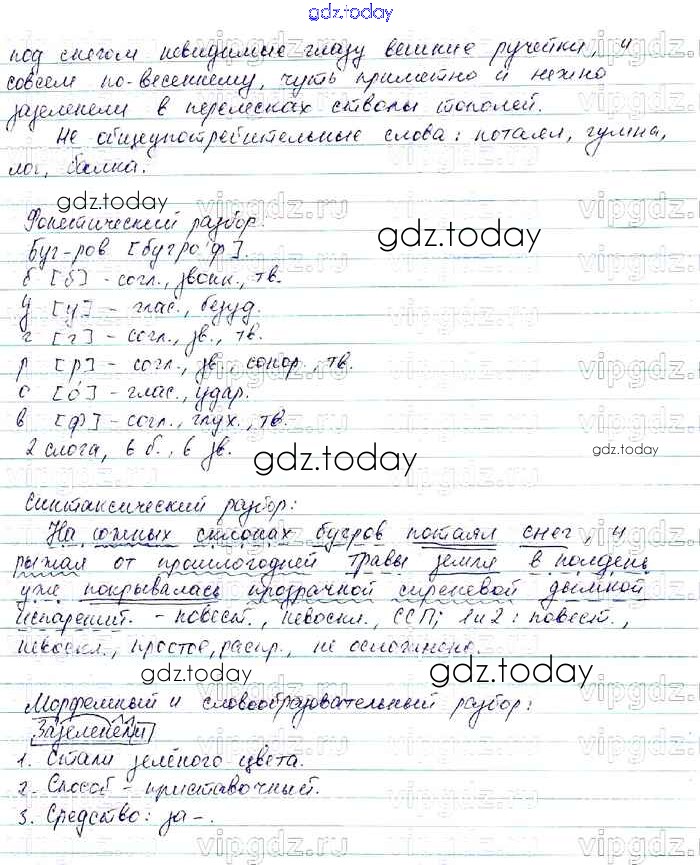 gdz.today
под снегом невидимые глазу вешние ручейки, и
совсем по-весеннему, чуть приметно и нежно
зазеленели в перелесках стволы тополей.
Не общеупотребительные слова: потаял, гумна,
лог, балка.
gdz.today
Фонетический разбор.
gdz.today
Буг-ров [бугро́ф].
б [б] - согл., звонк., тв.
у [у] - глас., безуд.
г [г] - согл., зв., тв.
р [р] - согл., зв., сонор., тв.
о [о́] - глас., удар.
в [ф] - согл., глух., тв.
2 слога, 6 б., 6 зв.
gdz.today
gdz.today
Синтаксический разбор:
На южных склонах бугров потаял снег, и
рыжая от прошлогодней травы земля в полдень
уже покрывалась прозрачной сиреневой дымкой
испарений. - повест., невоскл., ССП; 1 и 2: повест.,
невоскл., простое, распр., не осложнено.
gdz.today
gdz.today
Морфемный и словообразовательный разбор:
Зазеленели
1. Стали зелёного цвета.
2. Способ - приставочный.
3. Средство: за-.
gdz.today
vipgdz.ru